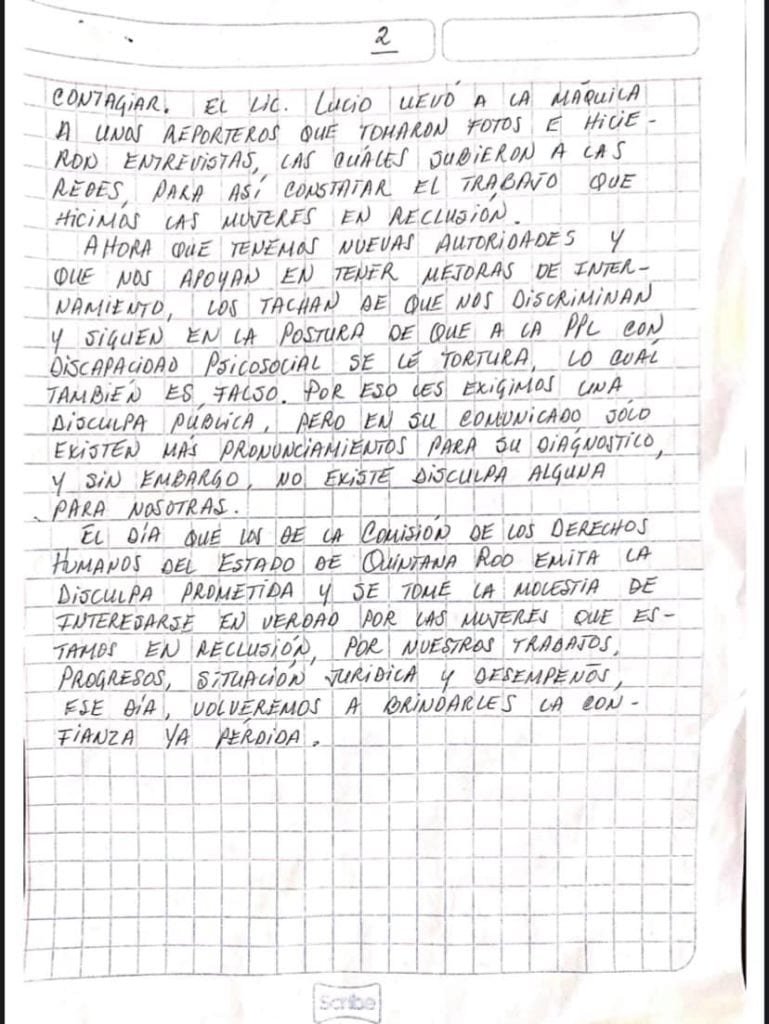 2
CONTAGIAR. EL LIC. LUCIO LLEVÓ A LA MÁQUILA
A UNOS REPORTEROS QUE TOMARON FOTOS E HICIE-
RON ENTREVISTAS, LAS CUÁLES SUBIERON A LAS
REDES, PARA ASÍ CONSTATAR EL TRABAJO QUE
HICIMOS LAS MUJERES EN RECLUSIÓN.
AHORA QUE TENEMOS NUEVAS AUTORIDADES Y
QUE NOS APOYAN EN TENER MEJORAS DE INTER-
NAMIENTO, LOS TACHAN DE QUE NOS DISCRIMINAN
Y SIGUEN EN LA POSTURA DE QUE A LA PPL CON
DISCAPACIDAD PSICOSOCIAL SE LE TORTURA, LO CUAL
TAMBIÉN ES FALSO. POR ESO LES EXIGIMOS UNA
DISCULPA PÚBLICA, PERO EN SU COMUNICADO SÓLO
EXISTEN MÁS PRONUNCIAMIENTOS PARA SU DIAGNOSTICO,
Y SIN EMBARGO, NO EXISTE DISCULPA ALGUNA
PARA NOSOTRAS.
EL DÍA QUE LOS DE LA COMISIÓN DE LOS DERECHOS
HUMANOS DEL ESTADO DE QUINTANA ROO EMITA LA
DISCULPA PROMETIDA Y SE TOME LA MOLESTIA DE
INTERESARSE EN VERDAD POR LAS MUJERES QUE ES-
TAMOS EN RECLUSIÓN, POR NUESTROS TRABAJOS,
PROGRESOS, SITUACIÓN JURIDICA Y DESEMPEÑOS,
ESE DÍA, VOLVEREMOS A BRINDARLES LA CON-
FIANZA YA PÉRDIDA.
Scribe